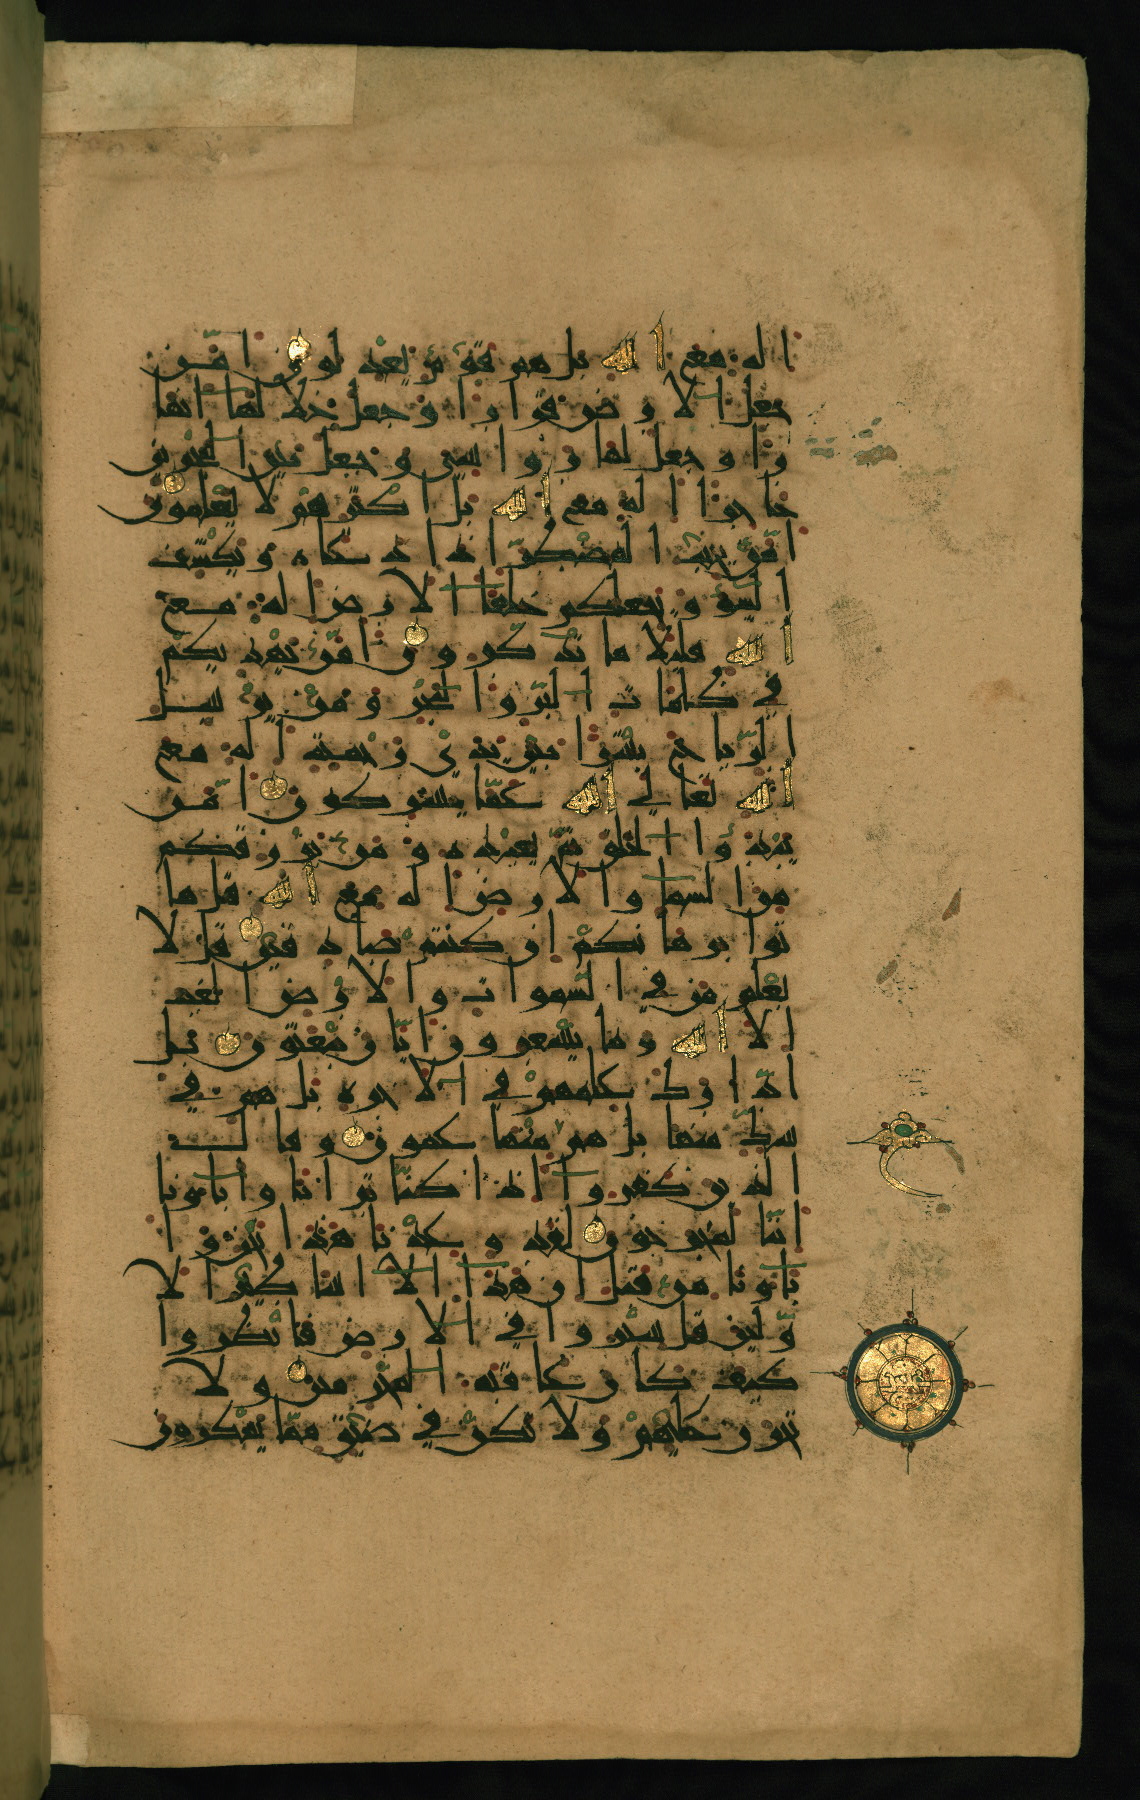 اله مع الله بل هم قوم يعدلون امن
جعل الارض قرارا وجعل خلالها انها
را وجعل لها رواسي وجعل بين البحرين
حاجزا اله مع الله بل اكثرهم لا يعلمون
امن يجيب المضطر اذا دعاه ويكشف
السوء ويجعلكم خلفا الارض اله مع
الله قليلا ما تذكرون امن يهديكم
في ظلمات البر والبحر ومن يرسل
الرياح بشرا بين يدي رحمته اله مع
الله تعالى الله عما يشركون امن
يبدؤا الخلق ثم يعيده ومن يرزقكم
من السما والارض اله مع الله قل ها
توا برهانكم ان كنتم صادقين قل لا
يعلم من في السموات والارض الغيب
الا الله وما يشعرون ايان يبعثون بل
ادارك علمهم في الاخرة بل هم في
شك منها بل هم منها عمون وقال
الذين كفروا اذا كنا ترابا واباونا
انا لمخرجون لقد وعدنا هذا نحن وا
باونا من قبل ان هذا الا اساطير الا
ولين قل سيروا في الارض فانظروا
كيف كان عاقبة المجرمين ولا
تحزن عليهم ولا تكن في ضيق مما يمكرون